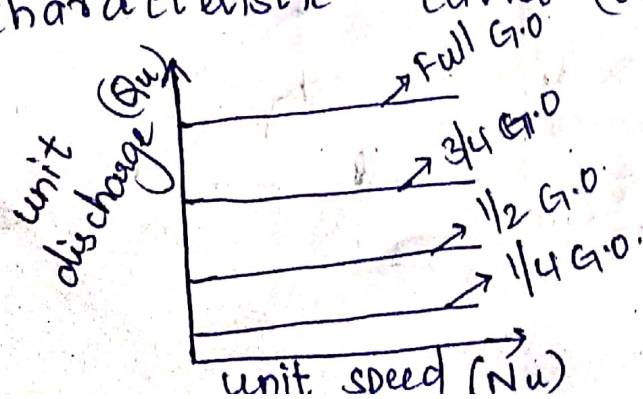 characteristic curves
Full G.O
unit discharge (Qu)
3/4 G.O
1/2 G.O.
1/4 G.O.
unit speed (Nu)